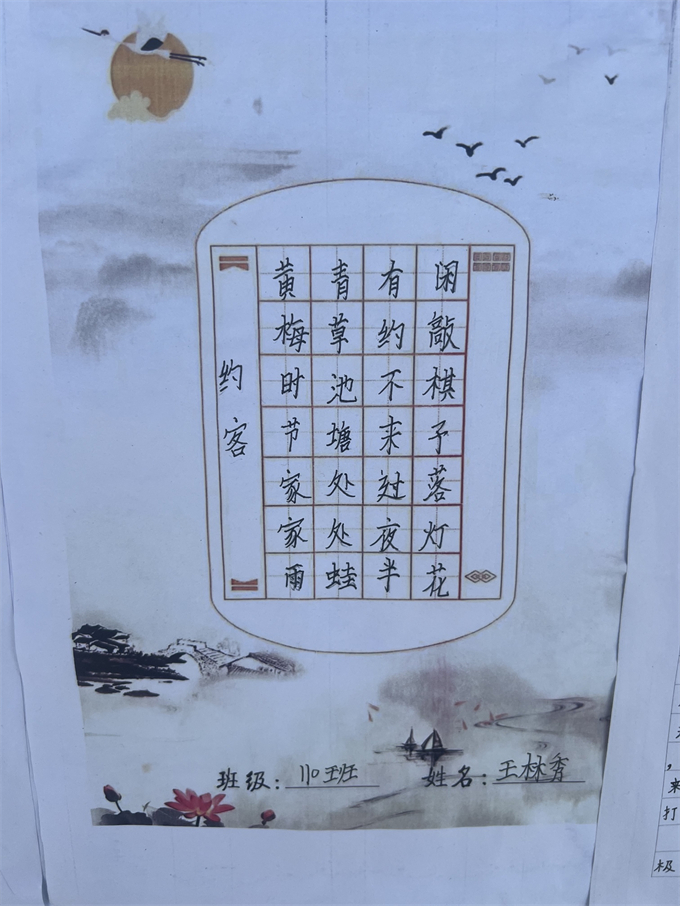 约客
黄梅时节家家雨
青草池塘处处蛙
有约不来过夜半
闲敲棋子落灯花
班级: 110班 姓名: 王林秀
,
来
打
极